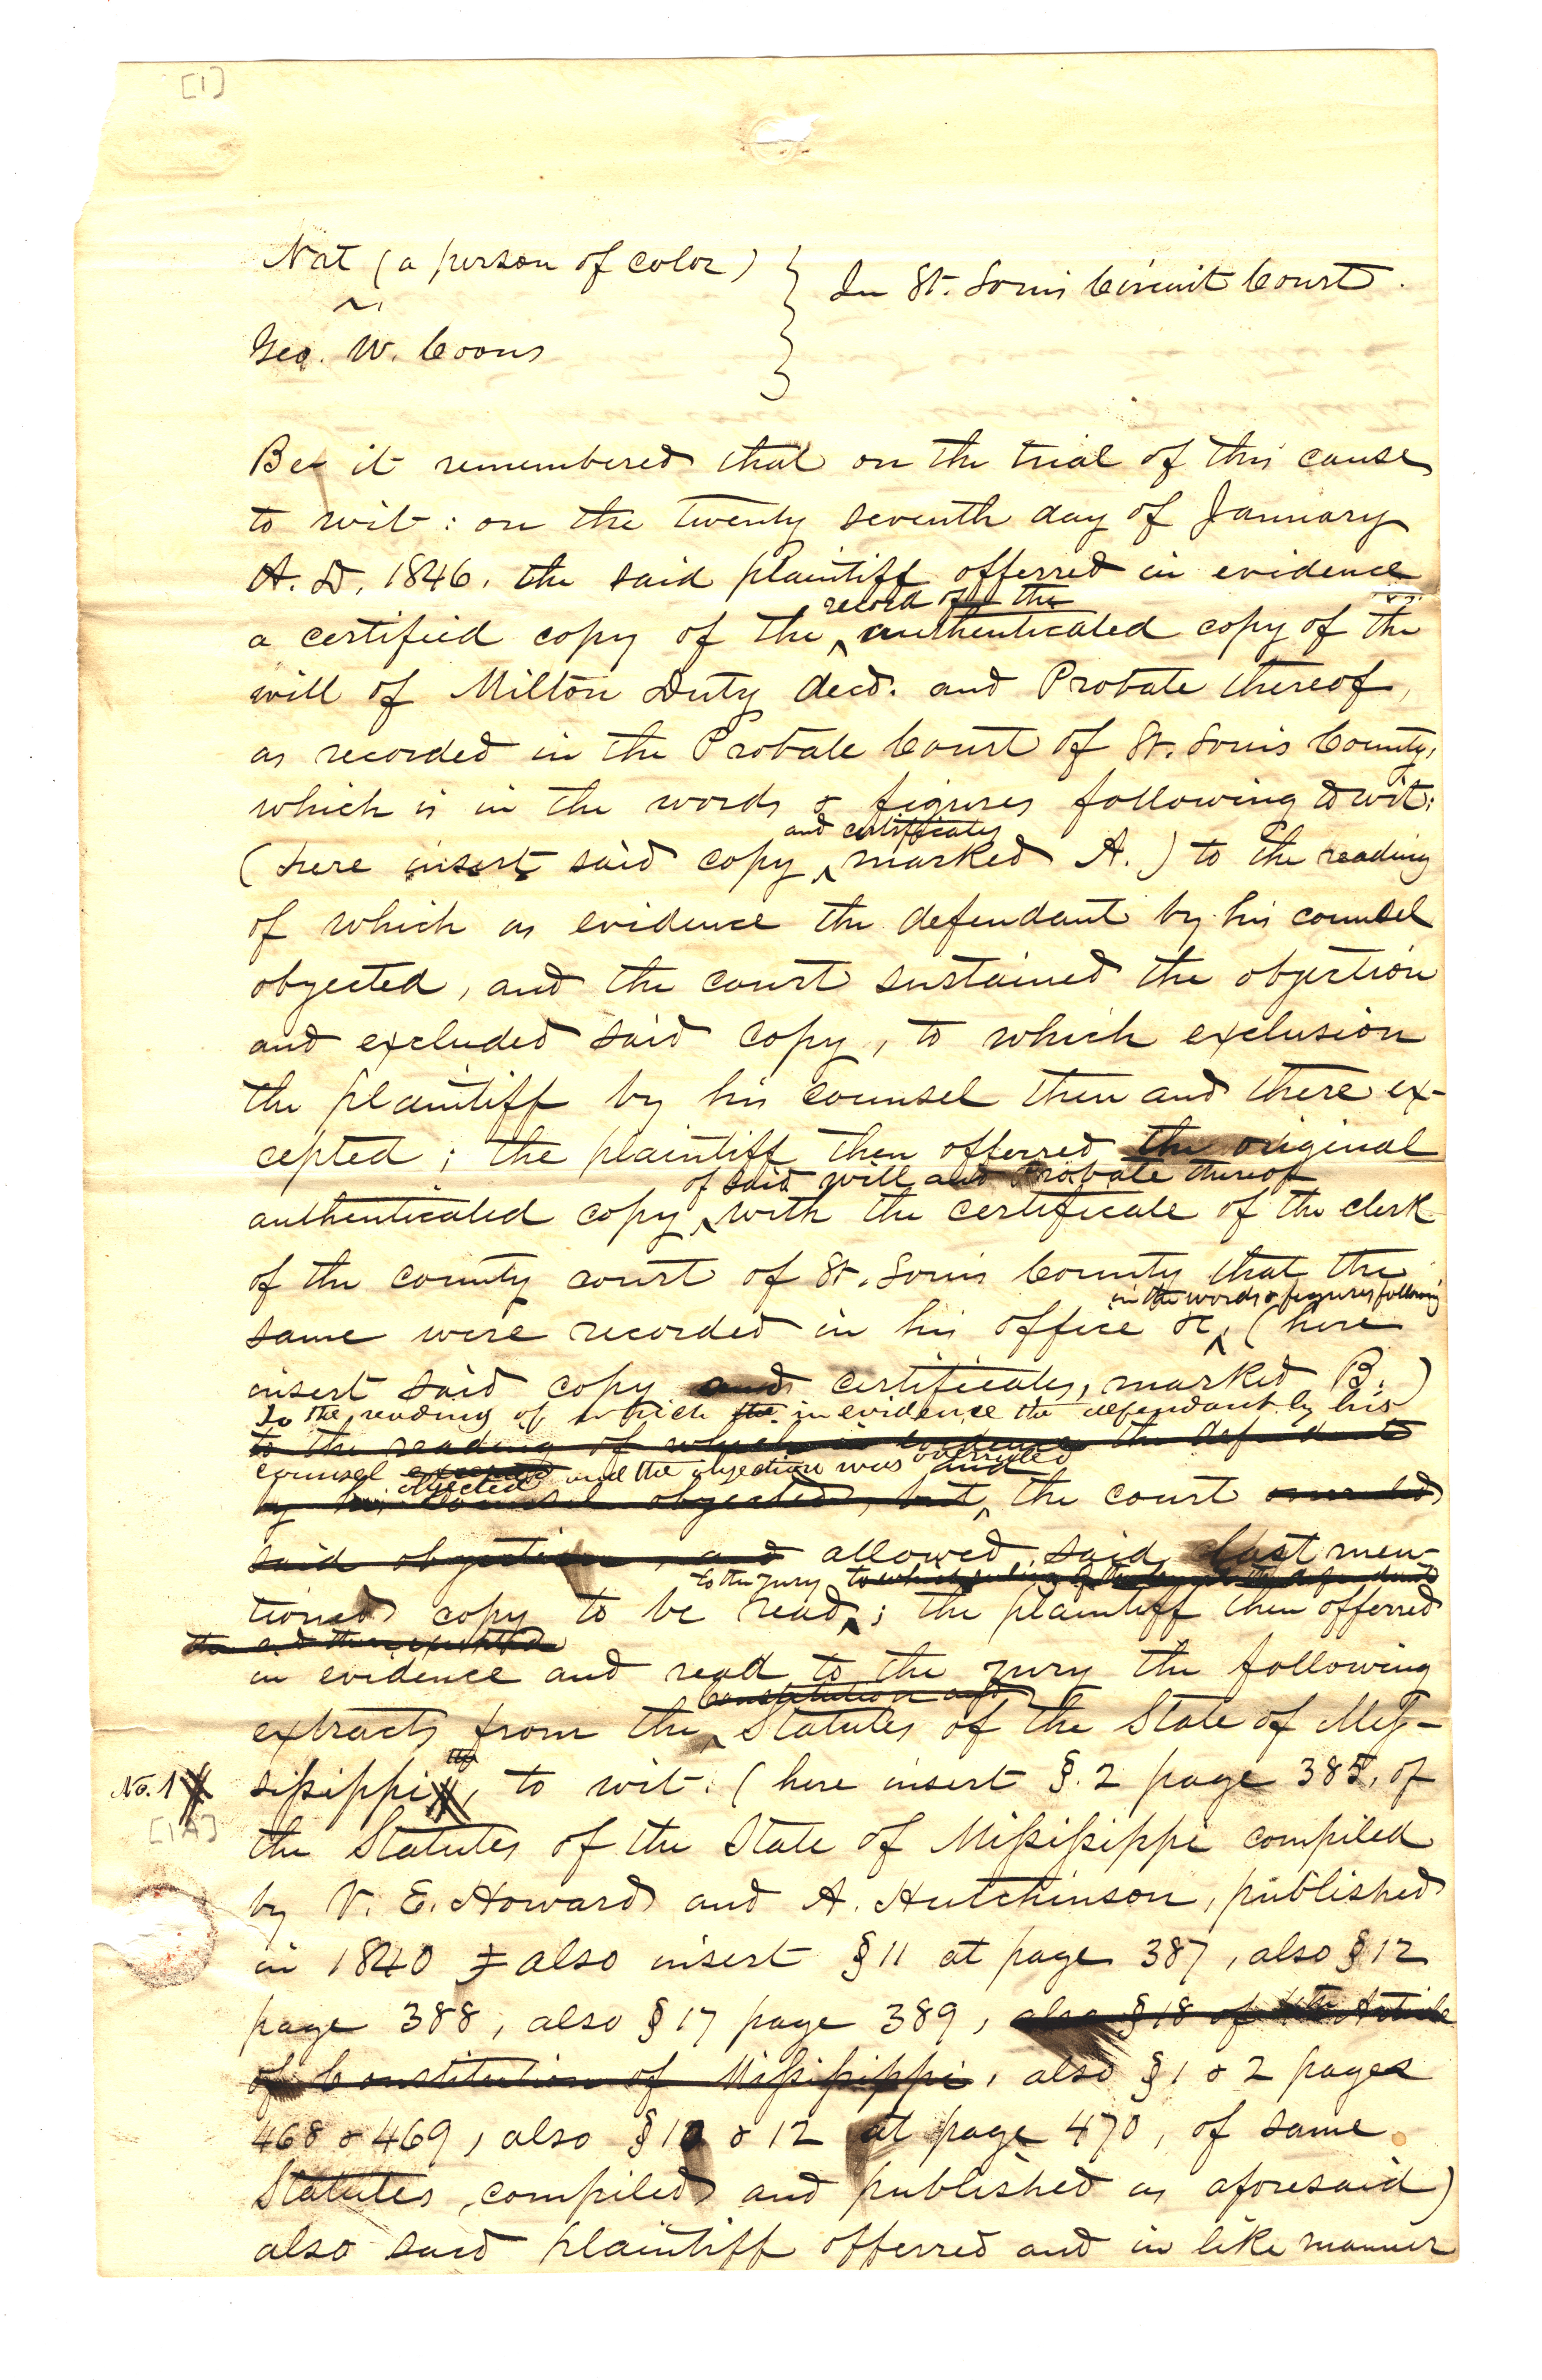 [1]
Nat (a person of color) } In St. Louis Circuit Court.
vs
Geo. W. Coons
Be it remembered that on the trial of this cause
to wit: on the twenty seventh day of January
A. D. 1846. the said plaintiff offerred in evidence
record of the
a certified copy of the authenticated copy of the
will of Milton Duty decd. and Probate thereof,
as recorded in the Probate Court of St. Louis County,
which is in the words & figures following to wit:
and certificates
(here insert said copy marked A.) to the reading
of which as evidence the defendant by his counsel
objected, and the court sustained the objection
and excluded said copy, to which exclusion
the plaintiff by his counsel then and there ex-
cepted; the plaintiff then offerred the original
of said will and Probate thereof
authenticated copy with the certificate of the clerk
of the county court of St. Louis County that the
in the words & figures following
same were recorded in his office &c, (here
insert said copy and certificates, marked B.)
To the reading of which the in evidence the defendant by his
to the reading of which in evidence the defendant
counsel excepted objected and the objection was overruled and
by his counsel objected, but, the court overruled
said objection, and allowed said last men-
to the jury to which
tioned copy to be read; the plaintiff then offerred
then and there excepted
in evidence and read to the jury the following
constitution and
extracts from the Statutes of the State of Miſ-
siſsippi, to wit: (here insert §. 2 page 385, of
No. 1
[1A]
the Statutes of the State of Miſsiſsippi compiled
by V. E. Howard and A. Hutchinson, published
in 1840 & also insert §11 at page 387, also §12
page 388, also §17 page 389, also §18 of Article
of Constitution of Miſsiſsippi, also §1 & 2 pages
468 & 469, also §10 & 12 at page 470, of same
Statutes, compiled and published as aforesaid)
also said plaintiff offerred and in like manner